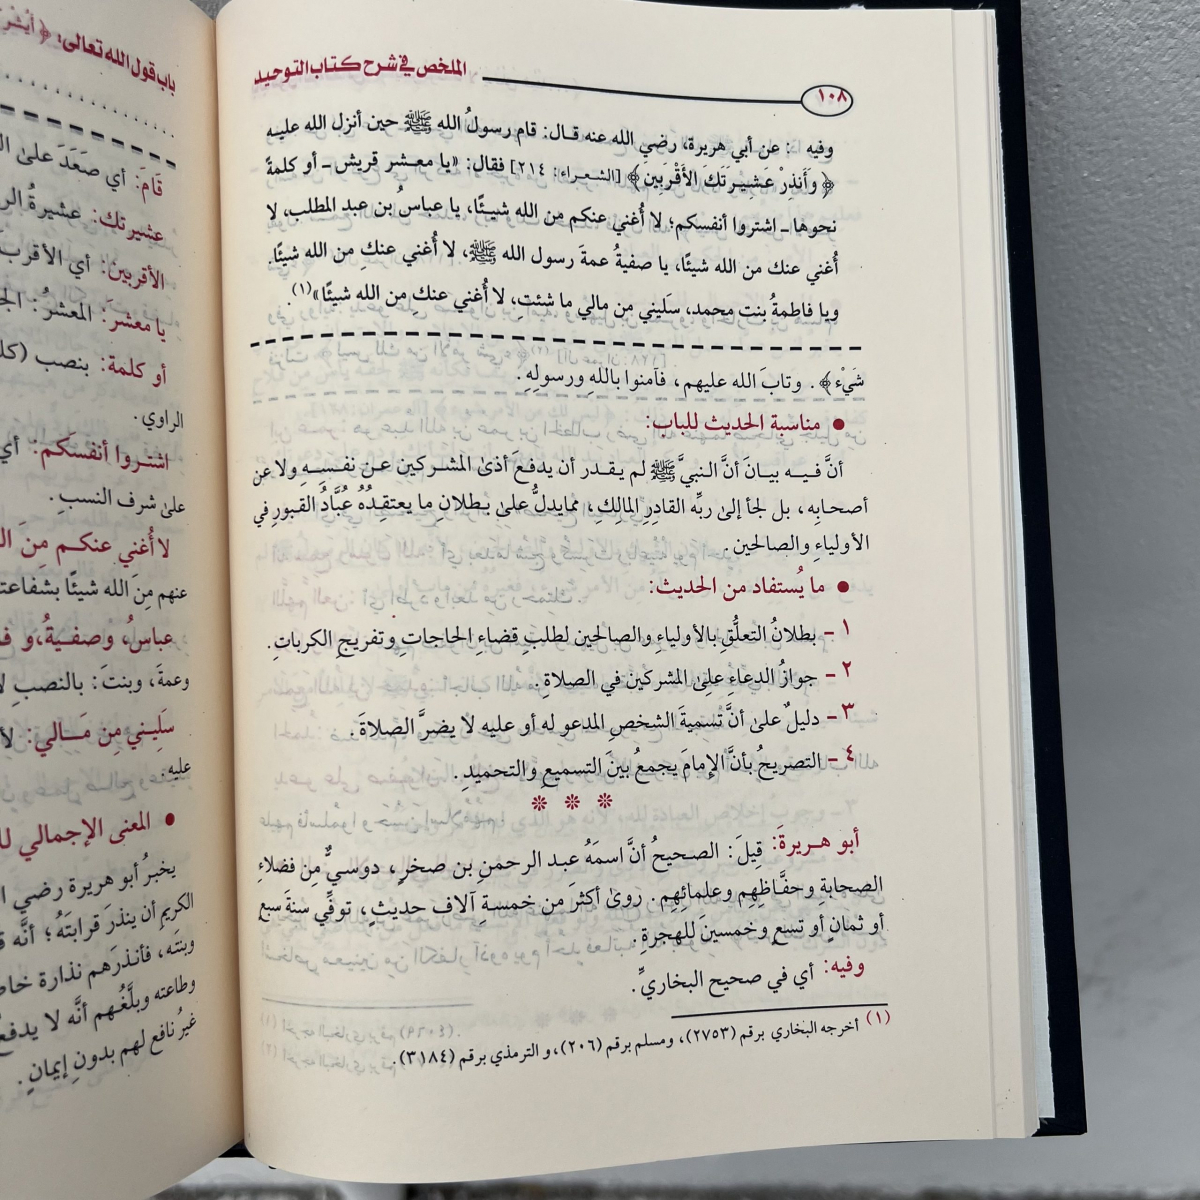 الملخص في شرح كتاب التوحيد
١٠٨
وفيه : عن أبي هريرة، رضي الله عنه قال: قام رسولُ الله ﷺ حين أنزل الله عليه
﴿وَأَنذِرْ عَشِيرَتَكَ الأَقْرَبِينَ﴾ [الشعراء: ٢١٤] فقال: «يا معشر قريش ـ أو كلمةً
نحوها ـ اشتروا أنفسكم؛ لا أُغني عنكم مِن الله شيئًا، يا عباسُ بن عبد المطلب، لا
أُغني عنك من الله شيئًا، يا صفيةُ عمةَ رسول الله ﷺ، لا أُغني عنكِ مِن الله شيئًا.
ويا فاطمةُ بنت محمد، سَليني من مالي ما شئتِ، لا أُغني عنكِ مِن الله شيئًا»(١).
شَيْء﴾. وتابَ الله عليهم، فآمنوا باللهِ ورسولِهِ.
● مناسبة الحديث للباب:
أنَّ فيه بيانَ أنَّ النبيَّ ﷺ لم يقدر أن يدفعَ أذىٰ المشركين عن نفسِهِ ولا عن
أصحابِه، بل لجأ إلىٰ ربِّه القادِرِ المالِكِ، ممايدلُّ علىٰ بطلانِ ما يعتقِدُهُ عُبَّادُ القبورِ في
الأولياءِ والصالحين.
● ما يُستفاد من الحديث:
١ - بطلانُ التعلُّقِ بالأولياءِ والصالحين لطلبِ قضاءِ الحاجاتِ وتفريجِ الكرباتِ.
٢ - جوازُ الدعاءِ علىٰ المشركين في الصلاةِ.
٣ - دليلٌ علىٰ أنَّ تسميةَ الشخصِ المدعو له أو عليه لا يضرَّ الصلاةَ.
٤ - التصريحُ بأنَّ الإمامَ يجمعُ بينَ التسميعِ والتحميدِ.
* * *
أبو هريرةَ: قِيلَ: الصحيحُ أنَّ اسمَهُ عبد الرحمنِ بن صخرٍ، دوسيٌّ مِن فضلاءِ
الصحابةِ وحفَّاظِهِم وعلمائِهِم. روىٰ أكثرَ مِن خمسةِ آلاف حديثٍ، توفِّي سنةَ سبعٍ
أو ثمانٍ أو تسعٍ وخمسينَ للهجرةِ.
وفيه: أي في صحيح البخاريِّ.
(١) أخرجه البخاري برقم (٢٧٥٣)، ومسلم برقم (٢٠٦)، و الترمذي برقم (٣١٨٤).
باب قول الله تعالى: ﴿
قَامَ: أي صَعَدَ علىٰ
عشيرتك: عشيرةُ
الأقربين: أي الأقرب
يا معشر: المعشرُ:
أو كلمة: بنصب
الراوي.
اشتروا أنفسَكم: أي
علىٰ شرف النسبِ.
لا أُغني عنكم مِنَ
عنهم مِنَ الله شيئًا
عباسُ، وصفيةُ، و
وعمةَ، وبنتَ: بالنصبِ
سَليني مِن مَالي:
عليه.
● المعنى الإجمالي
يخبرُ أبو هريرة رضي
الكريمِ أن ينذرَ قرابتَهُ؛ أنَّه
وبنتَه، فأنذرَهم نذارة
وطاعته وبلَّغُهم أنَّه لا
غيرُ نافعٍ لهم بدونِ إيمانٍ.